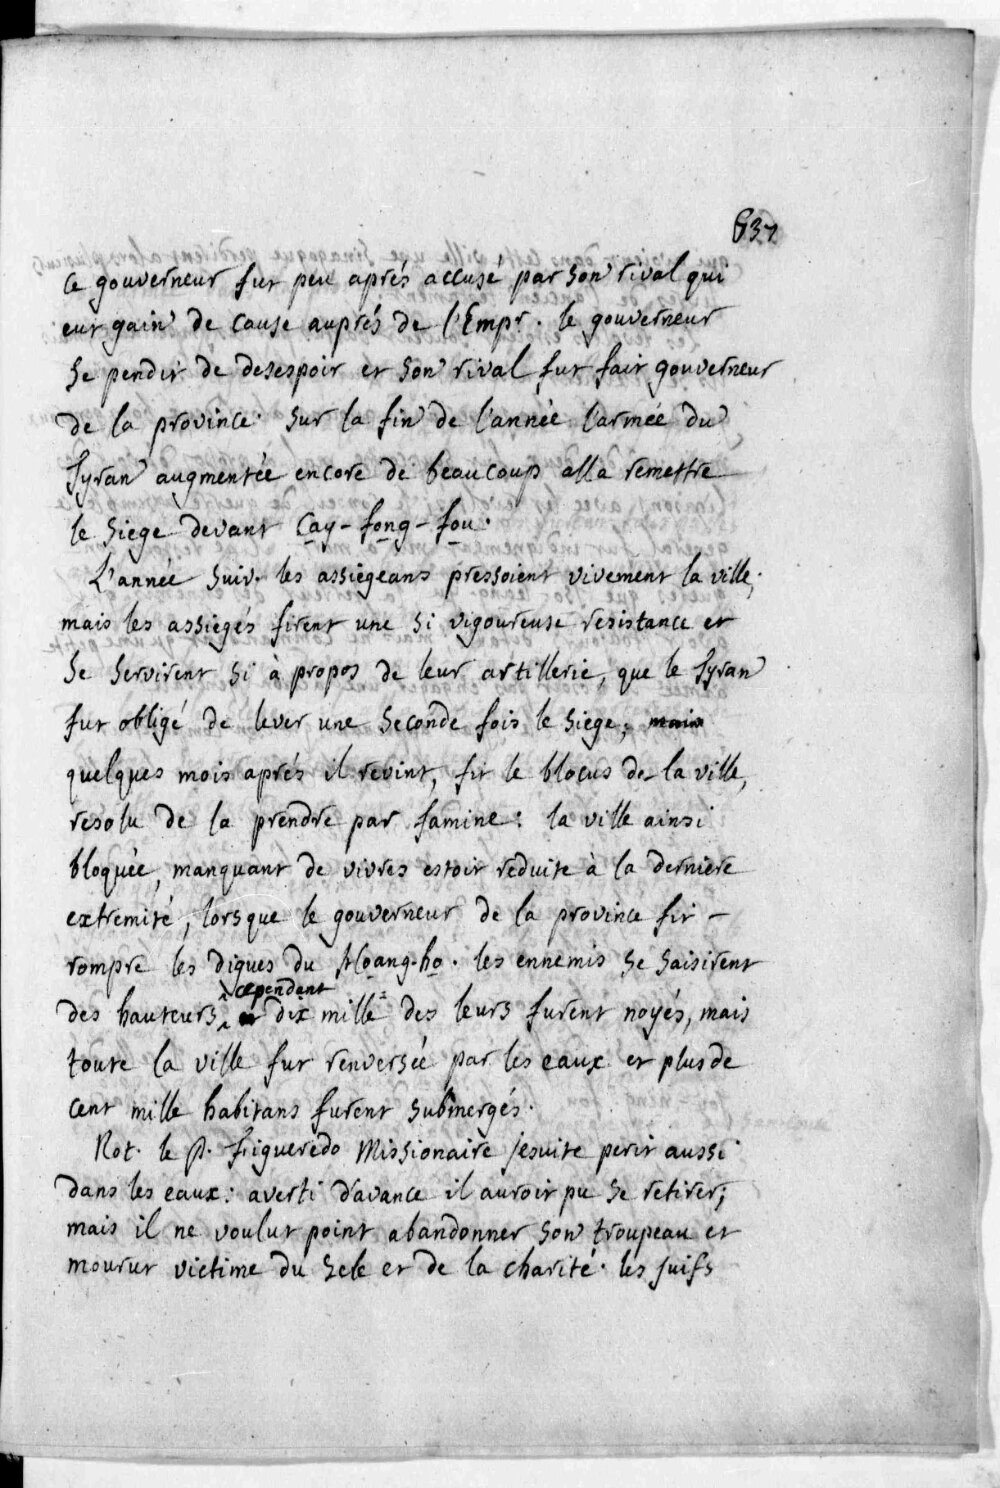 637
ce gouverneur fut peu aprés accusé par son rival qui
eut gain de cause auprés de l'Empr. le gouverneur
se pendit de desespoir et son rival fut fait gouverneur
de la province. Sur la fin de l'année l'armée du
Tyran augmentée encore de beaucoup alla remettre
le siege devant Cay-fong-fou.
L'année suiv. les assiégeans pressoient vivement la ville;
mais les assiegés firent une si vigoureuse resistance et
se servirent si à propos de leur artillerie, que le Tyran
fut obligé de lever une seconde fois le siege; mais
quelques mois aprés il revint, fit le blocus de la ville,
resolu de la prendre par famine: la ville ainsi
bloquée, manquant de vivres estoit reduite à la derniere
extremité, lorsque le gouverneur de la province fit -
rompre les digues du Hoang-ho. les ennemis se saisirent
cependant
des hauteurs, et dix mille des leurs furent noyés, mais
toute la ville fut renversée par les eaux et plus de
cent mille habitans furent submergés.
Not. le P. Figueredo Missionaire jesuite perit aussi
dans les eaux: averti d'avance il auroit pu se retirer;
mais il ne voulut point abandonner son troupeau et
mourut victime du zele et de la charité. les juifs